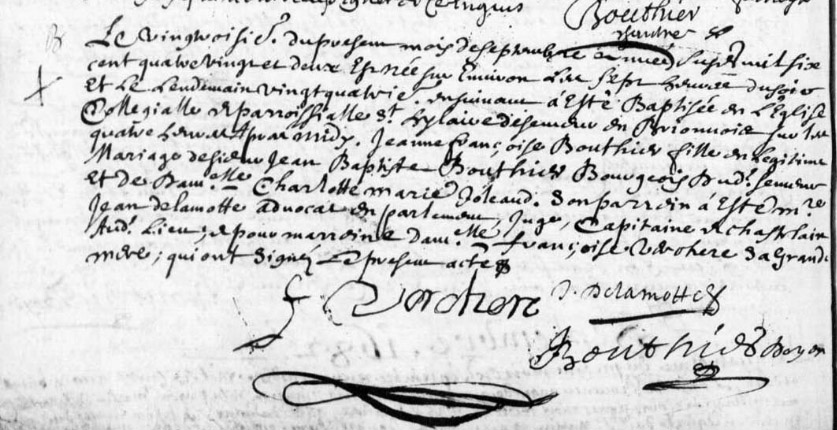 Bouthier
B Le vingtroisie. du present mois de septembre annee susd. mil six
cent quatre vingt et deux Est née sur Environ les sept heures du soir
Et Le Lendemain vingt quatrie. ensuivant à Esté Baptisée en L'Eglise
Collegialle et parroissialle St. hylaire de semeur en Brionnois sur les
quatre heures apres midy. Jeanne françoise Bouthier fille en Legitime
Mariage de sieur Jean Baptiste Bouthier Bourgeois dud. semeur
Et de Dam.elle Charlotte marie Joleaud. son parrein à Esté m.re
Jean delamotte advocat en parlement, Juge, Capitaine et chastelain
dud. Lieu; et pour marreine dam.elle françoise verchere sa grand
mere; qui ont signez Le present acte
f Verchere J. Delamotte
Bouthier Doyen